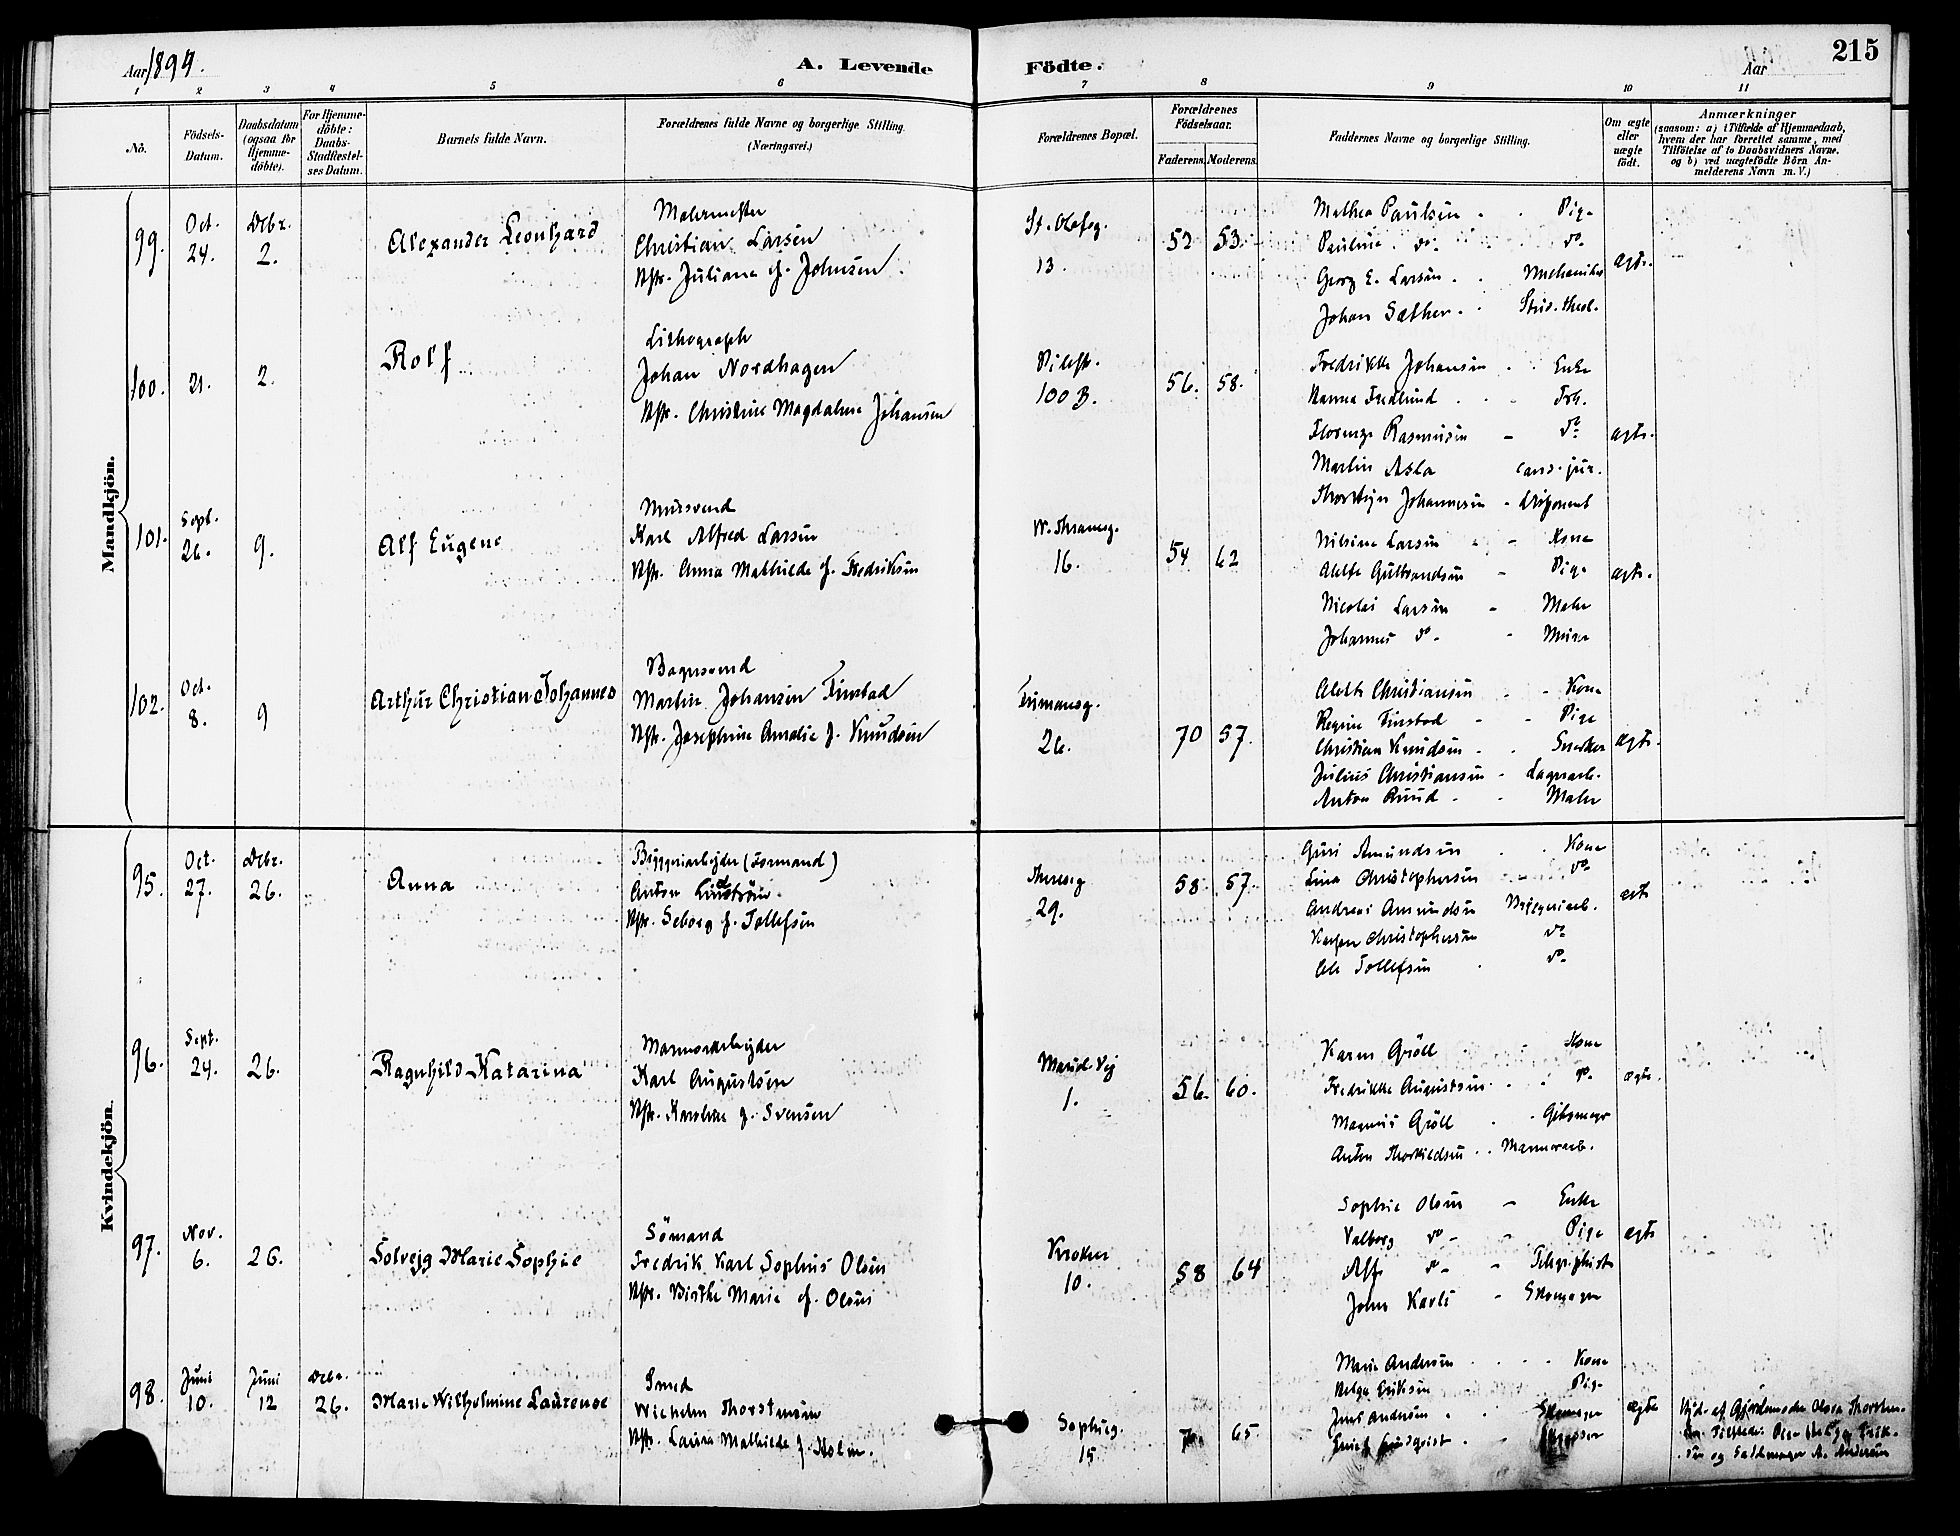 Aar 1894.
A. Levende
Födte.
Aar
215
1 2 3 4 5 6 7 8 9 10 11
No.
Födsels-
Datum.
Daabsdatum
(ogsaa for
Hjemme-
döbte).
For Hjemme-
döbte:
Daabs-
Stadfæstel-
ses Datum.
Barnets fulde Navn.
Forældrenes fulde Navne og borgerlige Stilling.
(Næringsvei.)
Forældrenes Bopæl.
Forældrenes
Födselsaar.
Faderens.
Moderens.
Faddernes Navne og borgerlige Stilling.
Om ægte
eller
uægte
födt.
Anmærkninger
(saasom: a) i Tilfælde af Hjemmedaab,
hvem der har forrettet samme, med
Tilföielse af to Daabsvidners Navne.
og b) ved uægtefödte Börn An-
melderens Navn m. V.)
Mandkjön.
99.
Oct.
24.
Dcbr.
2.
Alexander Leonhard
Malermester
Christian Larsen
Hstr. Juliane f. Johnsen.
St. Olafsg.
13.
52 53
Mathea Paulsen - - Pige
Pauline do - do
Georg E. Larsen - - Mechaniker
Johan Sæther - - Stud. theol.
ægte.
100.
21.
2.
Rolf
Lithograph
Johan Nordhagen
Hstr. Christine Magdalene Johansen
Pilestr.
100 B.
56. 58.
Fredrikke Johansen - Enke
Hanna Fredlund - - Frk.
Rasmusen - do
Martin cand. jur.
Johannesen - Disponent
ægte.
101.
Sept.
26.
9.
Alf Eugene
Mursvend
Karl Alfred Larsen
Hstr. Anna Mathilde f. Fredriksen
W. Thranesg.
16.
54 62
Nilsine Larsen - - Kone
Alette Gulbrandsen - Pige
Nicolai Larsen - Maler
Johannes do - - Murer
ægte.
102.
Oct.
8.
9
Arthur Christian Johannes
Bagersvend
Martin Johansen Finstad
Hstr. Josephine Amalie f. Knudsen
Frimansg.
26.
70 57.
Alette Christiansen - - Kone
Regine Finstad - - Pige
Christian Knudsen - - Snedker
Julius Christiansen - Lagerarb.
Anton Ruud - - Maler
ægte.
Kvindekjön.
95.
Oct.
27.
Dcbr.
26.
Anna
Bryggeriarbejder (Formand)
Anton Lindström.
Hstr. Seborg f. Tollefsen
Theresg
29.
58. 57.
Guri Amundsen - - Kone
Lina Christophersen - do
Andreas Amundsen Bryggeriarb.
Christophersen do
Ole Tollefsen - do
ægte
96.
Sept.
24.
26.
Ragnhild Katarina
Marmorarbejder
Karl Augustsen
Hstr. Karoline f. Svensen
Maud-Vej
1.
56. 60.
Karen Gröll - Kone
Fredrikke Augustsen - - do
Magnus Gröll - - Gibsmager
Anton Thorkildsen - - Marmorarb.
ægte.
97.
Nov.
6.
26.
Solvejg Marie Sophie
Sömand
Fredrik Karl Sophus Olsen
Hstr. Birthe Marie f. Olsen
Kroken
10.
58 64
Sophie Olsen - Enke
Valborg do - - Pige
Alf do - - Telegraphist
John Karls - Skomager
ægte
98.
Juni
10.
Juni
12
Dcbr.
26.
Marie Wilhelmine Laurense
Smed
Wilhelm Thorstensen
Hstr. Laura Mathilde f. Holm.
Sophieg.
15
65
Marie Andersen - - - Kone
Helga Eriksen Pige
Jens Andersen - - Skomager
Lundqvist
ægte
Hjd. af Gjordemoder Olava Thorsten-
sen. Tilstede: Pige Helga Erik-
sen og Andersen